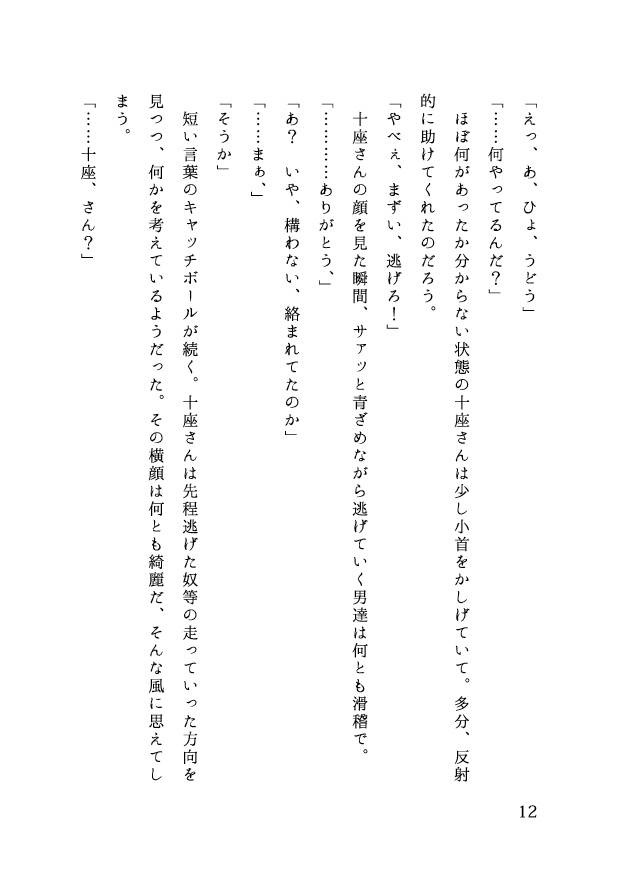 「えっ、あ、ひょ、うどう」
「……何やってるんだ？」
　ほぼ何があったか分からない状態の十座さんは少し小首をかしげていて。多分、反射
的に助けてくれたのだろう。
「やべぇ、まずい、逃げろ！」
　十座さんの顔を見た瞬間、サァッと青ざめながら逃げていく男達は何とも滑稽で。
「…………ありがとう、」
「あ？　いや、構わない、絡まれてたのか」
「……まぁ、」
「そうか」
　短い言葉のキャッチボールが続く。十座さんは先程逃げた奴等の走っていった方向を
見つつ、何かを考えているようだった。その横顔は何とも綺麗だ、そんな風に思えてし
まう。
「……十座、さん？」
12